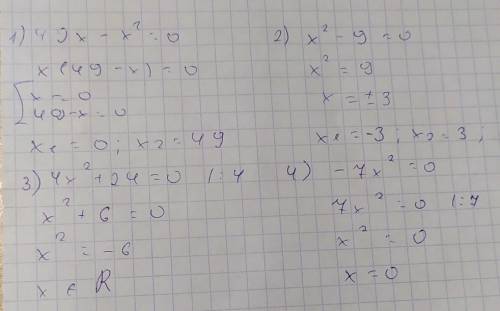 1) 49x - x² = 0
x(49 - x) = 0
[x = 0
49 - x = 0
x₁ = 0; x₂ = 49
2) x² - 9 = 0
x² = 9
x = ±3
x₁ = -3; x₂ = 3;
3) 4x² + 24 = 0 |:4
x² + 6 = 0
x² = -6
x ∈ R
4) - 7x² = 0
7x² = 0 |:7
x² = 0
x = 0